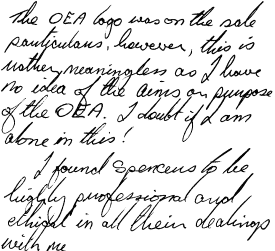 The OEA logo was on the sale
particulars, however, this is
rather meaningless as I have
no idea of the aims or purpose
of the OEA. I doubt if I am
alone in this!
I found Spencers to be
highly professional and
ethical in all their dealings
with me